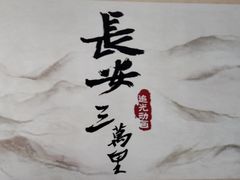 長安
三萬里
追光动画